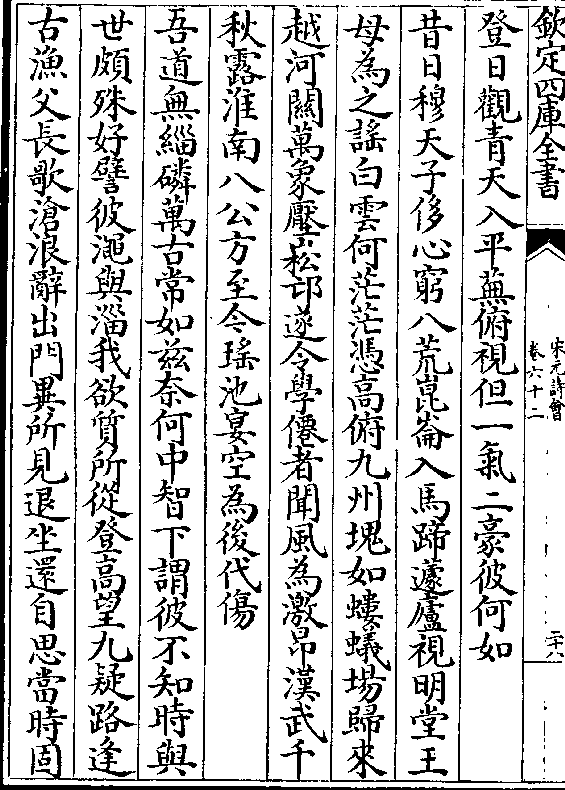 欽定四庫全書
宋元詩會
卷六十二
二十八
登日觀青天入平蕪俯視但一氣二豪彼何如
昔日穆天子侈心窮八荒崑崙入馬蹄蘧廬視明堂王
母為之謡白雲何茫茫憑高俯九州塊如螻蟻場歸來
越河關萬象壓崧邙遂令學僊者聞風為激昂漢武千
秋露淮南八公方至今瑶池宴空為後代傷
吾道無緇磷萬古常如兹奈何中智下謂彼不知時與
世頗殊好譬彼澠與淄我欲質所從登高望九疑路逢
古漁父長歌滄浪辭出門異所見退坐還自思當時固